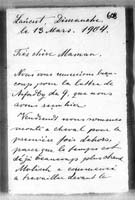 Laurent, Dimanche,
le 13 Mars, 1904.
Très chère Maman,
Nous vous remercions beau-
coup pour la lettre
de 9, que nous
avons
Vendredi nous sommes
monté à cheval pour la
première fois dehors,
parce que le temps est
déjà beaucoup plus chaud
a commencé
à travailler devant le